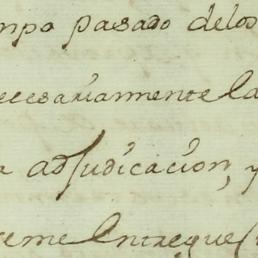 mpo pasado delos
ecesariamente la
a adjudicacion, y
eme Entregues